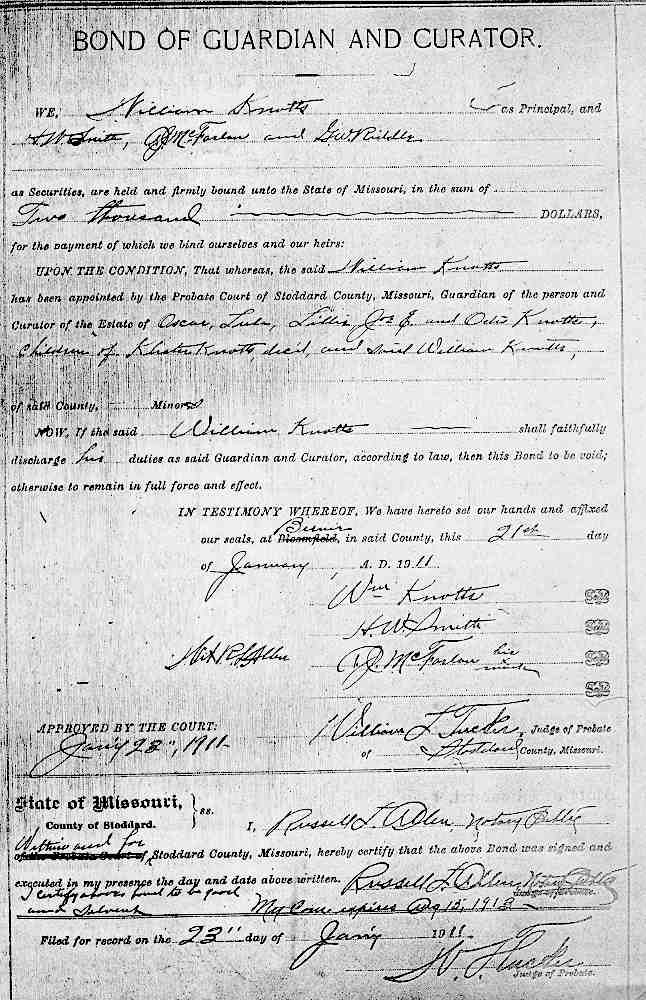 BOND OF GUARDIAN AND CURATOR.
WE, William Knotts as Principal, and
H. W. Smith, D.J. McFarlan and G W Riddle
as Securities, are held and firmly bound unto the State of Missouri, in the sum of
Two thousand DOLLARS,
for the payment of which we bind ourselves and our heirs:
UPON THE CONDITION, That whereas, the said William Knotts
has been appointed by the Probate Court of Stoddard County, Missouri, Guardian of the person and
Curator of the Estate of Oscar, Lula, Lillie, Joe E. and Odis Knotts,
Children of Knotts, dec'd, and said William Knotts,
of said County, Minors
NOW, If the said William Knotts shall faithfully
discharge his duties as said Guardian and Curator, according to law, then this Bond to be void;
otherwise to remain in full force and effect.
IN TESTIMONY WHEREOF, We have hereto set our hands and affixed
Bernie
our seals, at Bloomfield, in said County, this 21st day
of January A. D. 1911
Wm Knotts Seal
H. W. Smith Seal
Wit R L Allen D.J. McFarlan his x mark Seal
Seal
APPROVED BY THE COURT: William L. Tucker, Judge of Probate
Jan'y 23", 1911 of Stoddard County, Missouri.
State of Missouri, } ss.
County of Stoddard.
I, Russell L. Allen, Notary Public
Within and for
of the Probate Court of Stoddard County, Missouri, hereby certify that the above Bond was signed and
executed in my presence the day and date above written. Russell L. Allen, Notary Public
Judge of Probate.
I certify above bond to be good
and Solvent My Com. expires Aug 15, 1913
Filed for record on the 23" day of Jan'y 1911
W. L. Tucker
Judge of Probate.